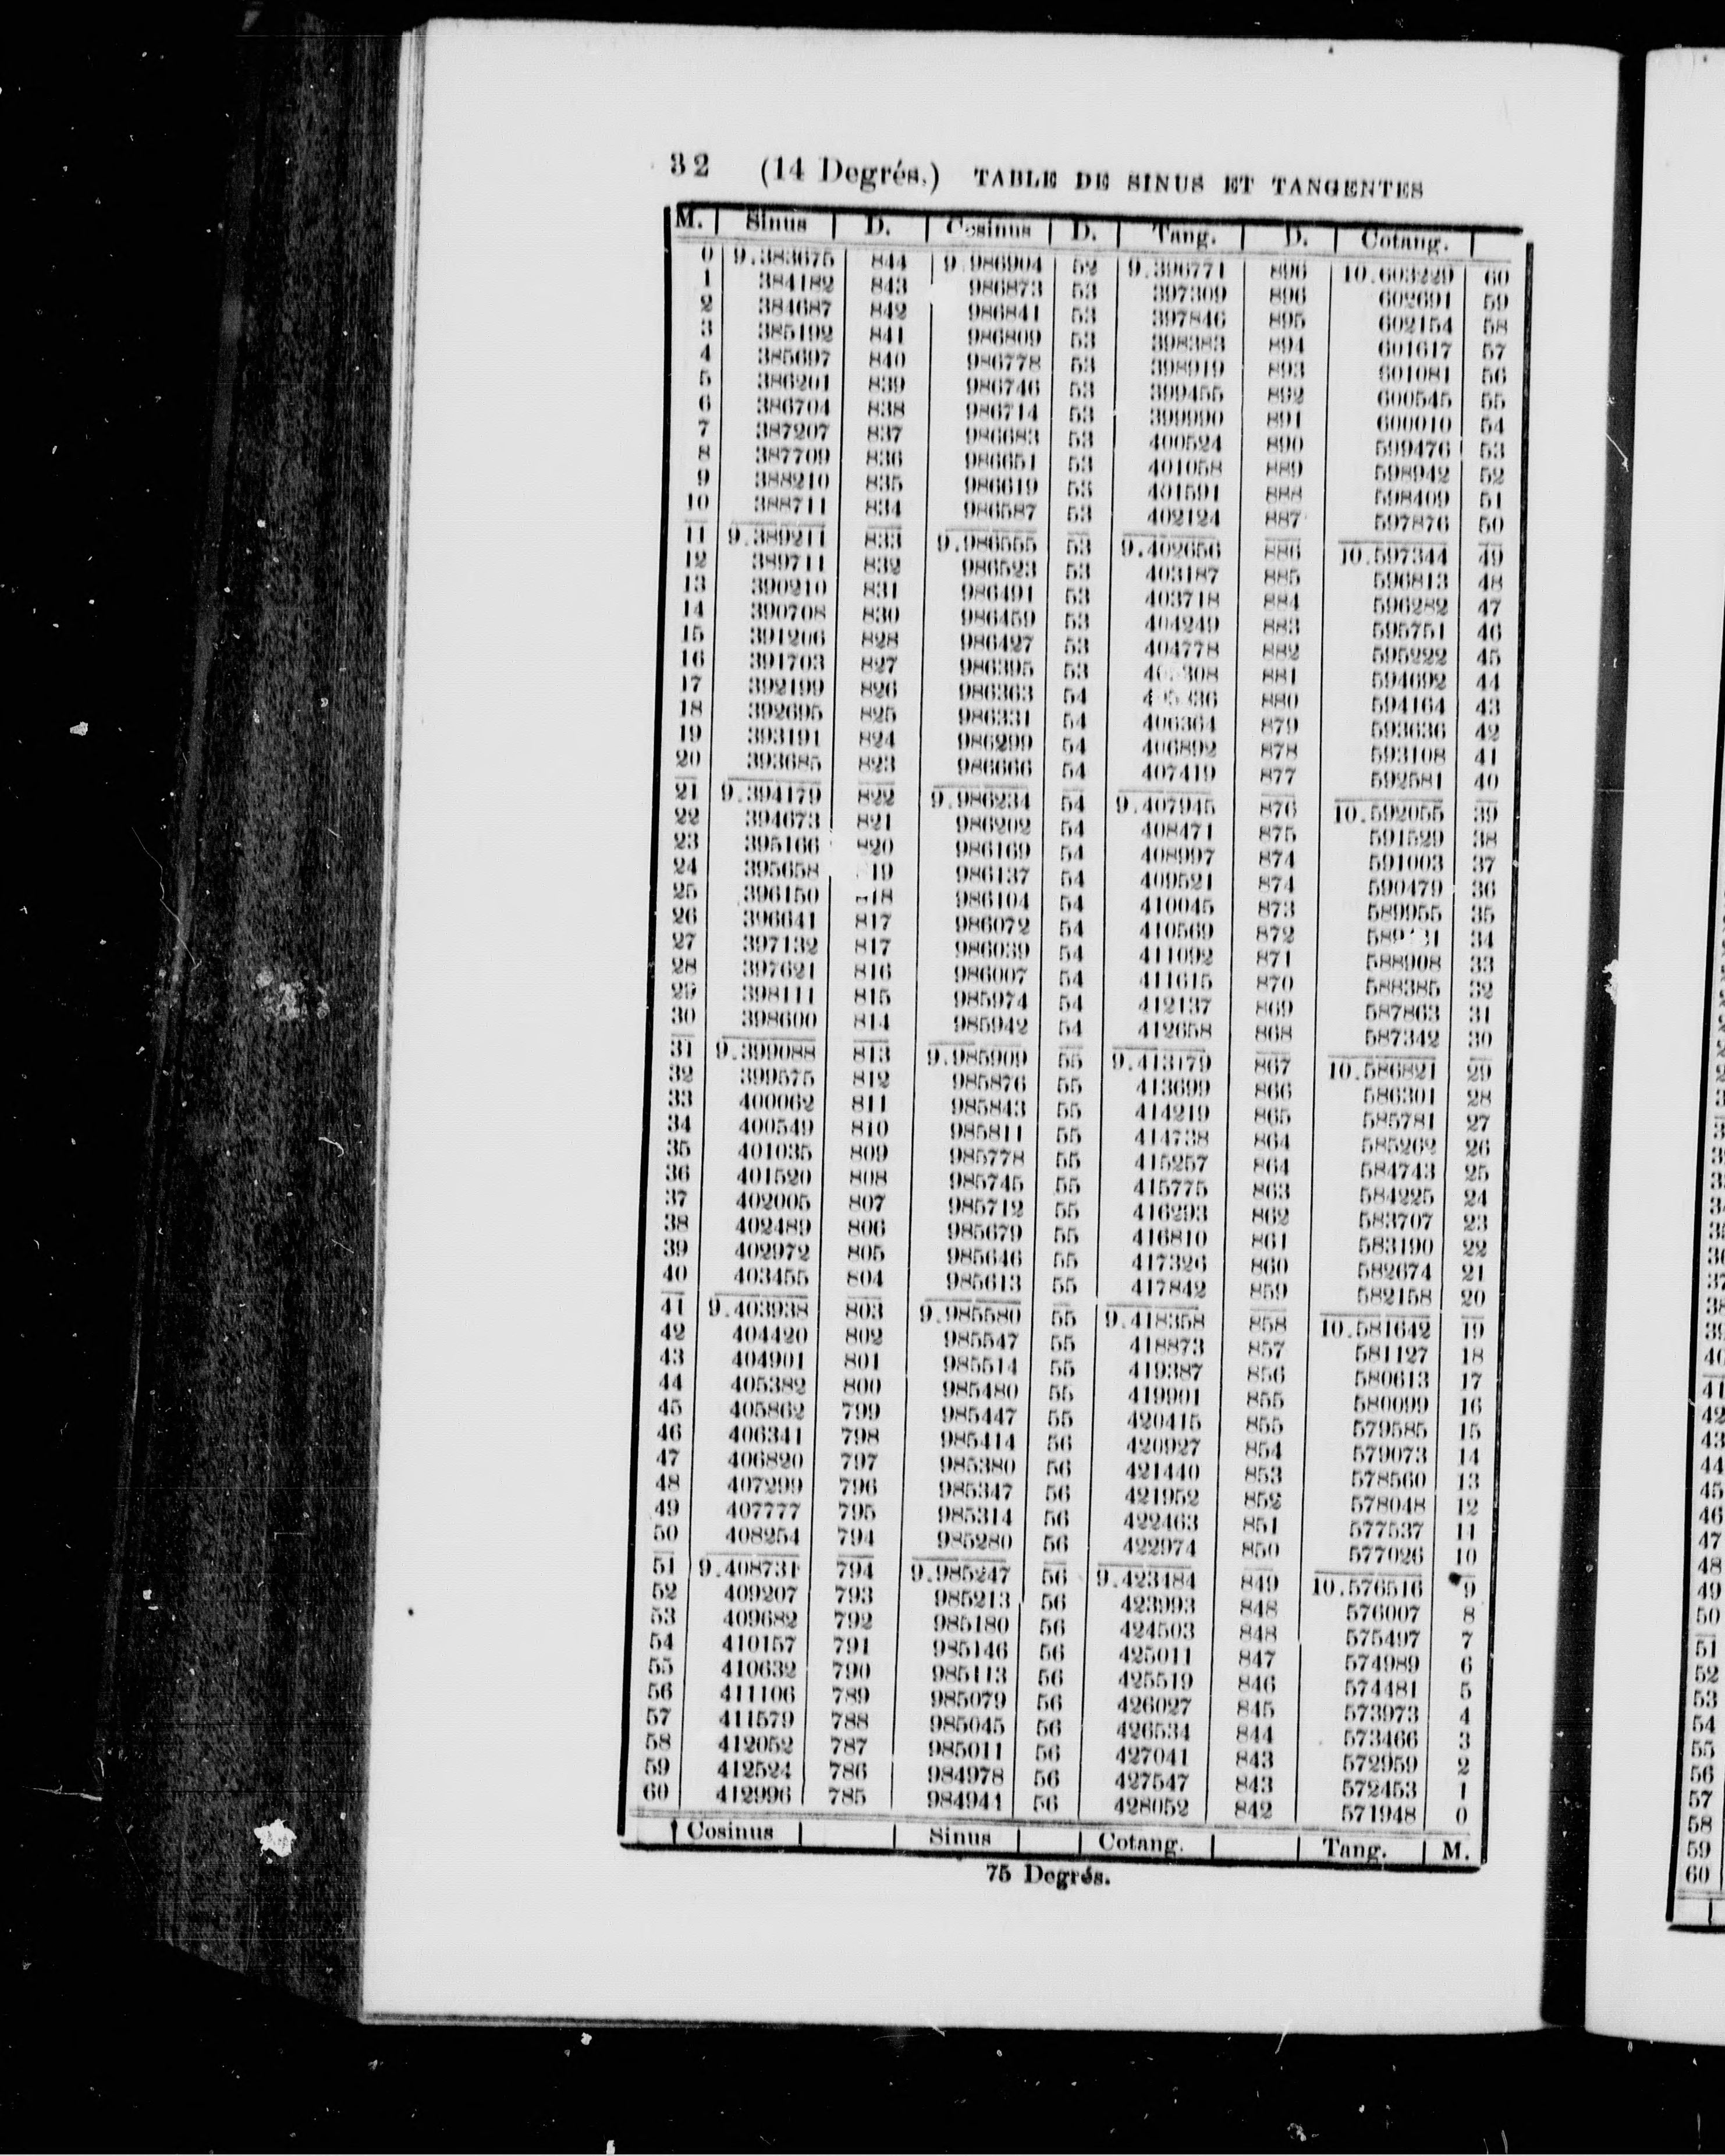 32 (14 Degrés.) TABLE DE SINUS ET TANGENTES
M. Sinus D. Cosinus D. Tang. D. Cotang.
0 9.383675 844 9.986904 52 9.396771 896 10.603229 60
1 384182 843 986873 53 397309 896 602691 59
2 384687 842 986841 53 397846 895 602154 58
3 385192 841 986809 53 398383 894 601617 57
4 385697 840 986778 53 398919 893 601081 56
5 386201 839 986746 53 399455 892 600545 55
6 386704 838 986714 53 399990 891 600010 54
7 387207 837 986683 53 400524 890 599476 53
8 387709 836 986651 53 401058 889 598942 52
9 388210 835 986619 53 401591 888 598409 51
10 388711 834 986587 53 402124 887 597876 50
11 9.389211 833 9.986555 53 9.402656 886 10.597344 49
12 389711 832 986523 53 403187 885 596813 48
13 390210 831 986491 53 403718 884 596282 47
14 390708 830 986459 53 404249 883 595751 46
15 391206 828 986427 53 404778 882 595222 45
16 391703 827 986395 53 881 594692 44
17 392199 826 986363 54 880 594164 43
18 392695 825 986331 54 406364 879 593636 42
19 393191 824 986299 54 406892 878 593108 41
20 393685 823 986666 54 407419 877 592581 40
21 9.394179 822 9.986234 54 9.407945 876 10.592055 39
22 394673 821 986202 54 408471 875 591529 38
23 395166 820 986169 54 408997 874 591003 37
24 395658 19 986137 54 409521 874 590479 36
25 396150 18 986104 54 410045 873 589955 35
26 396641 817 986072 54 410569 872 34
27 397132 817 986039 54 411092 871 588908 33
28 397621 816 986007 54 411615 870 588385 32
29 398111 815 985974 54 412137 869 587863 31
30 398600 814 985942 54 412658 868 587342 30
31 9.399088 813 9.985909 55 9.413179 867 10.586821 29
32 399575 812 985876 55 413699 866 586301 28
33 400062 811 985843 55 414219 865 585781 27
34 400549 810 985811 55 414738 864 585262 26
35 401035 809 985778 55 415257 864 584743 25
36 401520 808 985745 55 415775 863 584225 24
37 402005 807 985712 55 416293 862 583707 23
38 402489 806 985679 55 416810 861 583190 22
39 402972 805 985646 55 417326 860 582674 21
40 403455 804 985613 55 417842 859 582158 20
41 9.403938 803 9.985580 55 9.418358 858 10.581642 19
42 404420 802 985547 55 418873 857 581127 18
43 404901 801 985514 55 419387 856 580613 17
44 405382 800 985480 55 419901 855 580099 16
45 405862 799 985447 55 420415 855 579585 15
46 406341 798 985414 56 420927 854 579073 14
47 406820 797 985380 56 421440 853 578560 13
48 407299 796 985347 56 421952 852 578048 12
49 407777 795 985314 56 422463 851 577537 11
50 408254 794 985280 56 422974 850 577026 10
51 9.408731 794 9.985247 56 9.423484 849 10.576516 9
52 409207 793 985213 56 423993 848 576007 8
53 409682 792 985180 56 424503 848 575497 7
54 410157 791 985146 56 425011 847 574989 6
55 410632 790 985113 56 425519 846 574481 5
56 411106 789 985079 56 426027 845 573973 4
57 411579 788 985045 56 426534 844 573466 3
58 412052 787 985011 56 427041 843 572959 2
59 412524 786 984978 56 427547 843 572453 1
60 412996 785 984944 56 428052 842 571948 0
Cosinus Sinus Cotang. Tang. M.
75 Degrés.
40
41
42
43
44
45
46
47
48
49
50
51
52
53
54
55
56
57
58
59
60